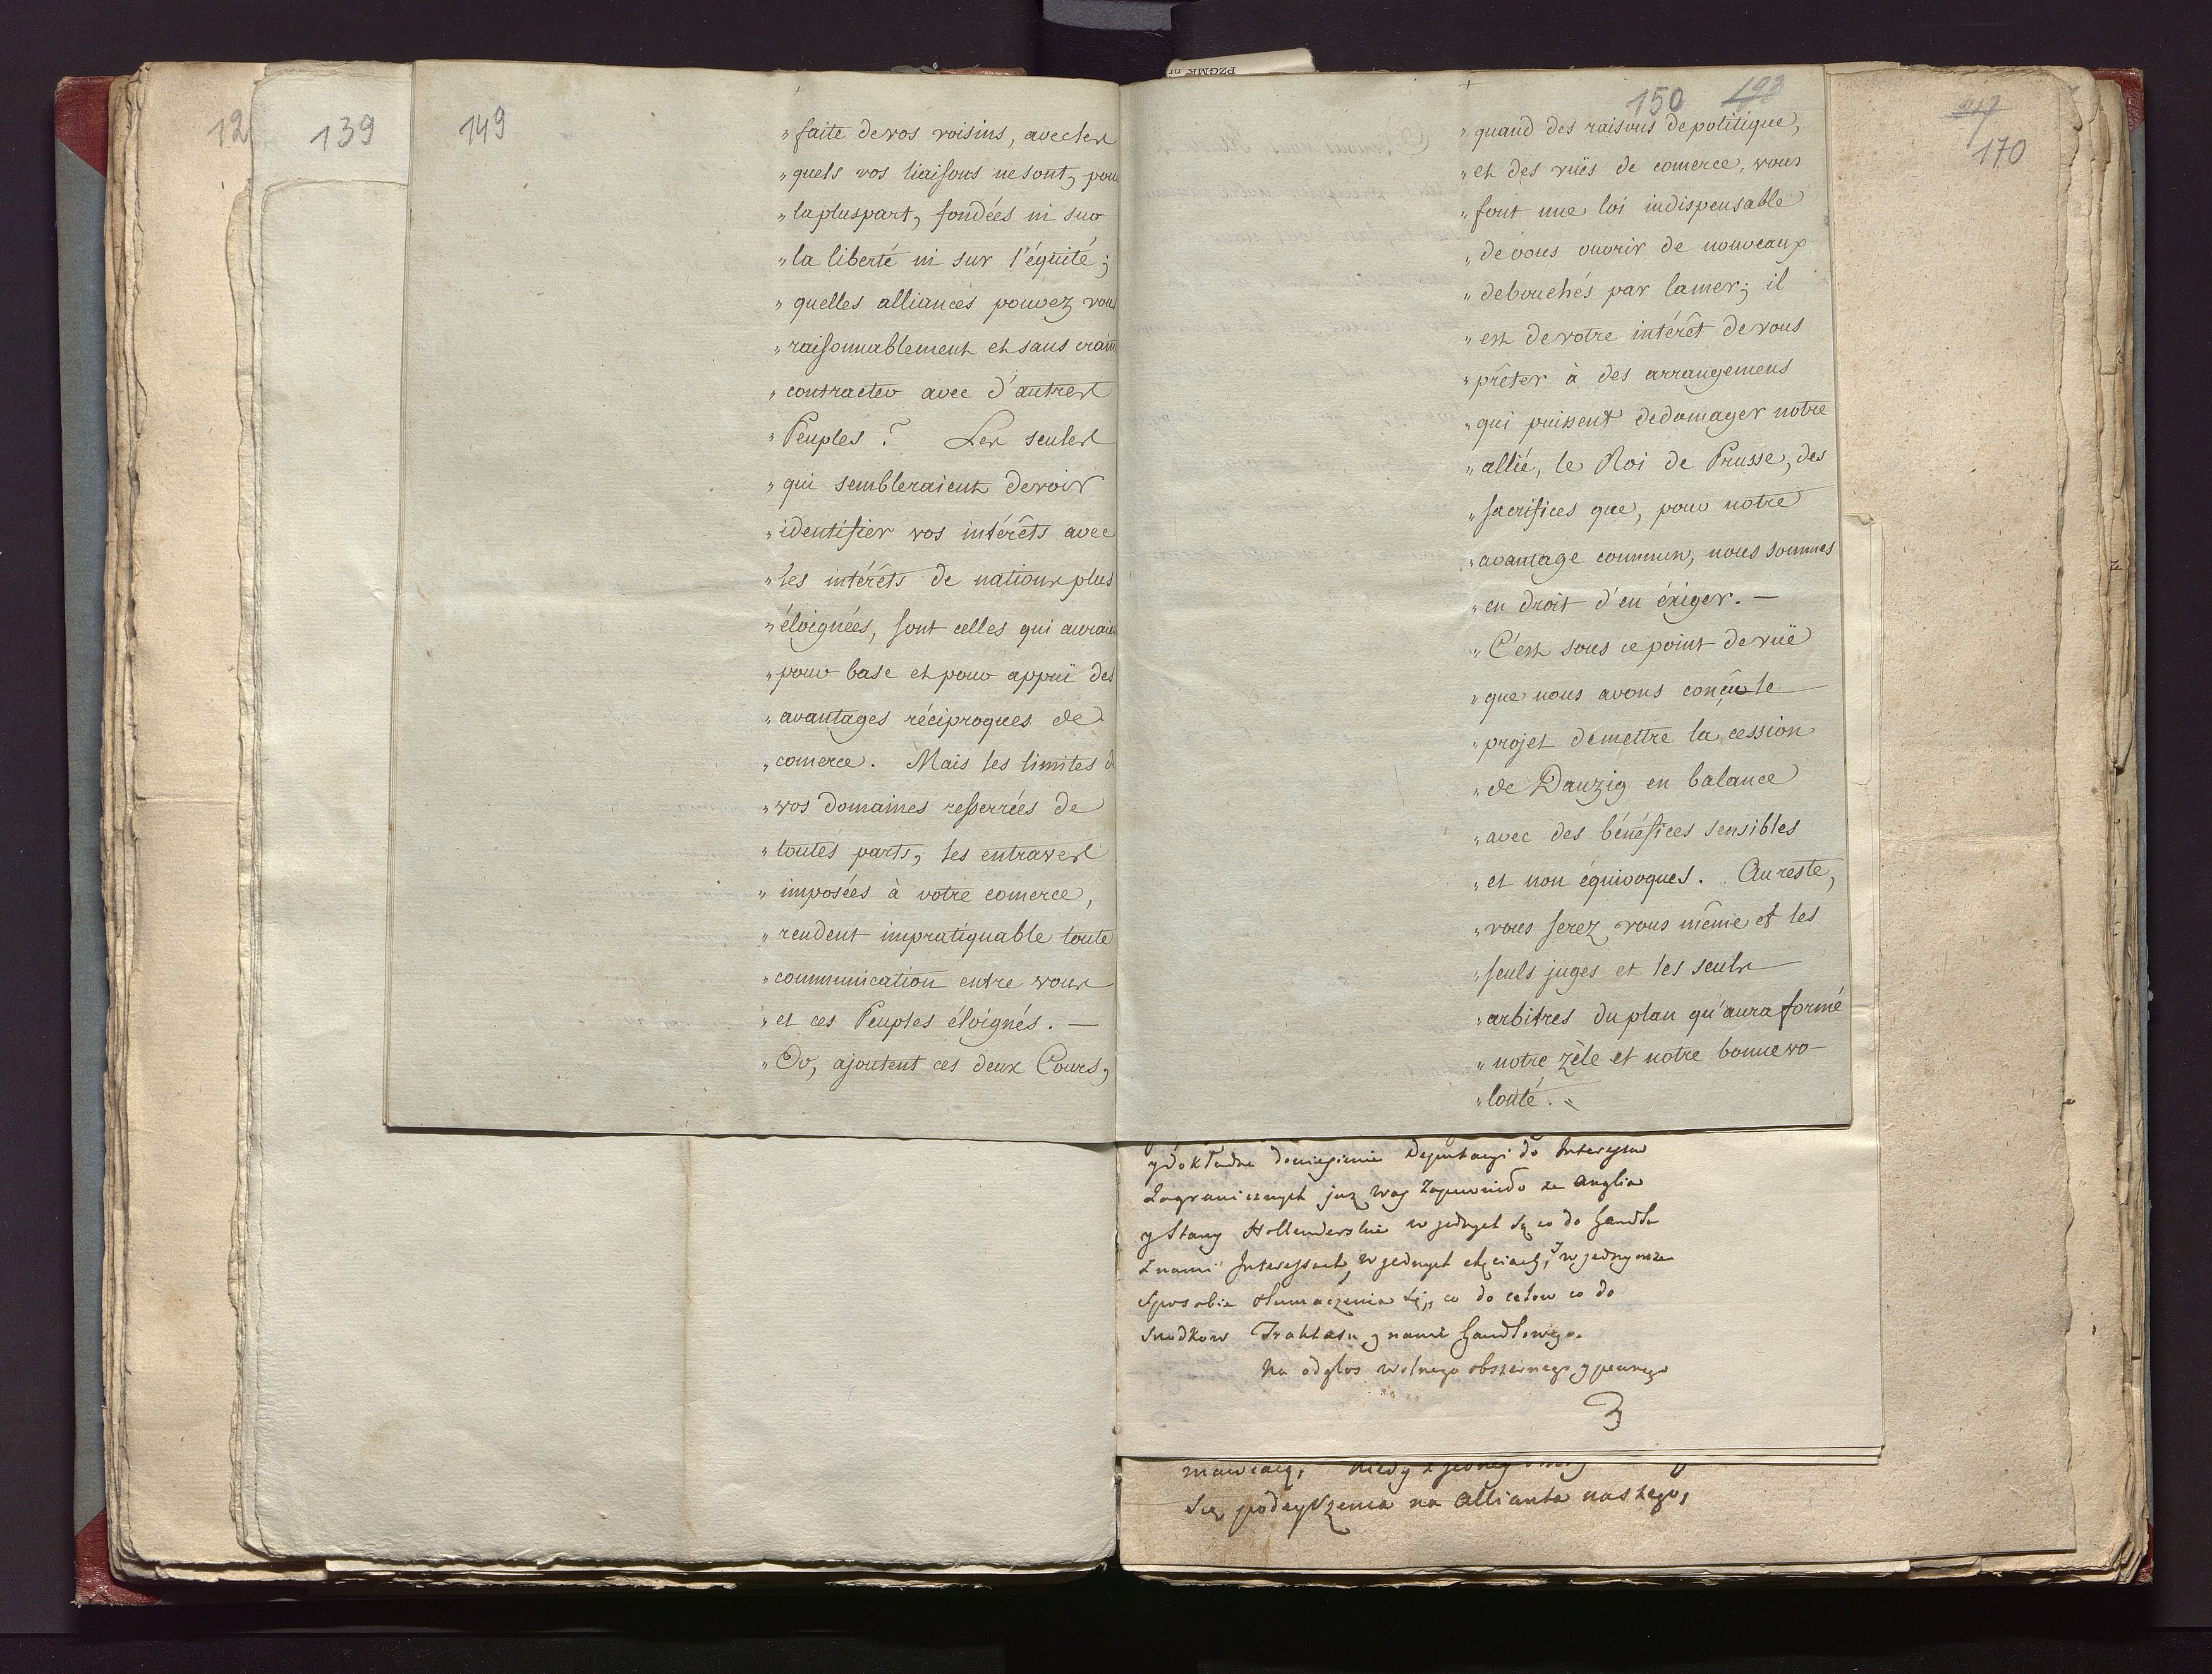 12
139
149
„faite de vos voisins, avec les
„quels vos liaisons ne sont, pour
„la pluspart, fondées ni sur
„la liberté ni sur l'équité;
„quelles alliances pouvez vous
„raisonnablement et sans crain
„contracter avec d'autres
„Peuples? Les seules
„qui sembleraient devoir
„identifier vos intérêts avec
„les intérêts de nations plus
„éloignées, sont celles qui auraien
„pour base et pour appuï des
„avantages réciproques de
„comerce. Mais les limites d
„vos domaines resserrées de
„toutes parts, les entraves
„imposées à votre comerce,
„rendent impratiquable toute
„communication entre vous
„et ces Peuples éloignés. —
„Or, ajoutent ces deux Cours,
150
„quand des raisons de politique,
„et des vuës de comerce, vous
„font une loi indispensable
„de vous ouvrir de nouveaux
„debouchés par la mer; il
„est de votre intérêt de vous
„prêter à des arrangemens
„qui puissent dedomager notre
„allié, le Roi de Prusse, des
„sacrifices que, pour notre
„avantage commun, nous sommes
„en droit d'en éxiger. —
„C'est sous ce point de vuë
„que nous avons conçû le
„projet de mettre la cession
„de Danzig en balance
„avec des bénéfices sensibles
„et non équivoques. Au reste,
„vous serez vous même et les
„seuls juges et les seuls
„arbitres du plan qu'aura formé
„notre zèle et notre bonne vo-
„lonté.
170
y dokładne doniesienie Deputacyi do Interesow
Zagranicznych juz was Zapewniło ze Anglia
y Stany Hollenderskie w jednych są co do handlu
z nami Interessach, w jednych chęciach, y w jednymze
sposobie tłumaczenia się, co do celow co do
srodkow Traktatu z nami handlowego.
Na odgłos wolnego obszernego y pewnego
3
się podwyzszenia na Allianta naszego,
PZGMK nr